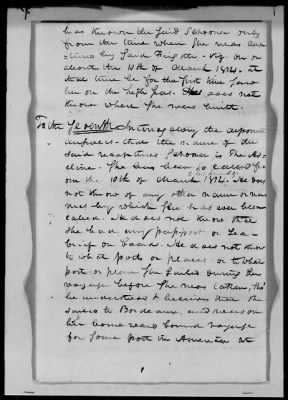 has known the said Schooner only
from the time when she was cap
tured by said Frigate. Viz. on or
about the 10th of March 1814. at
that time he for the first time saw
her on the high seas. He does not
know where she was built.
To the Seventh Interrogatory the deponent
answers that the name of the
said captured Schooner is The
She was so called
on the 10th of March 1814. He does
not know of any other name or na
mes by which she has ever been
called. He does not know that
she had any passport or Sea
brief on board. He does not know
to what port or places or to what
port or place she sailed during the
voyage before she was taken, tho'
he understood & believes that she
sailed to Bordeaux, and was on
her homeward bound voyage
for some port in America at